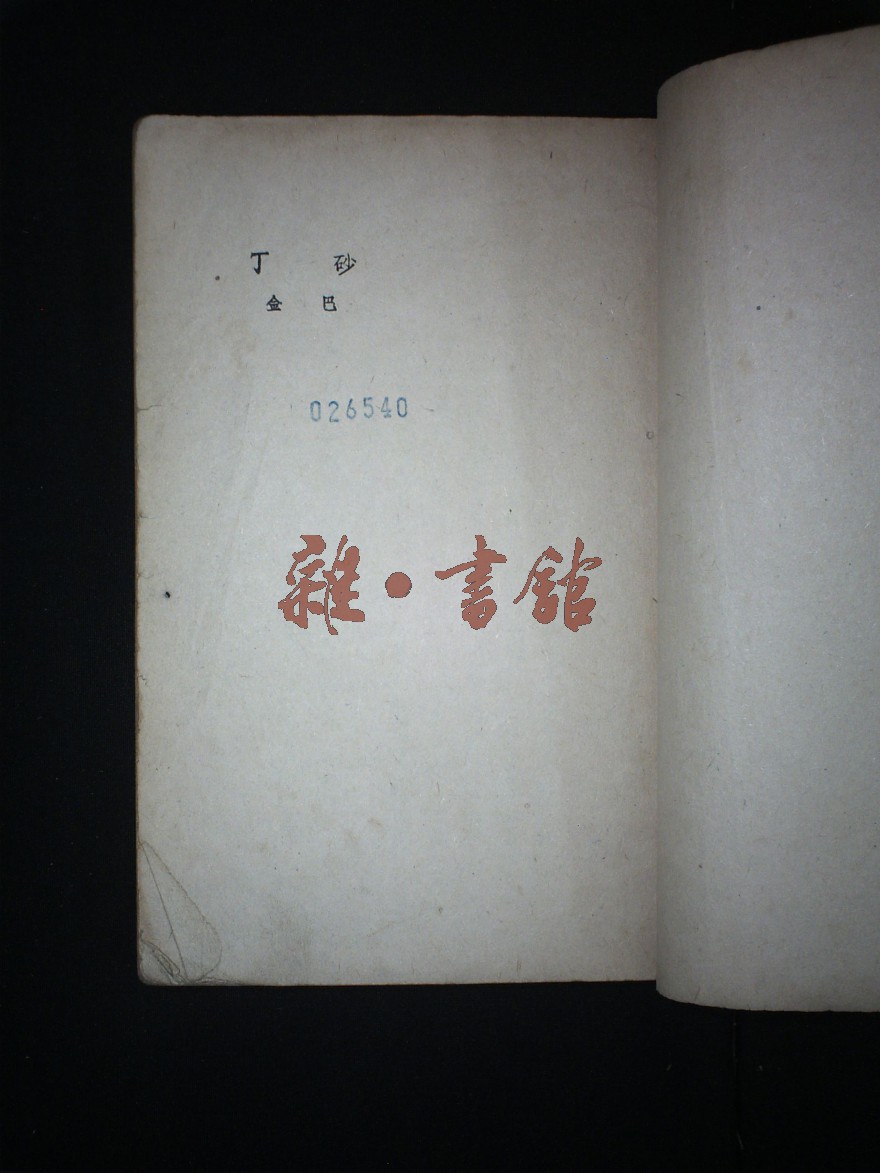 砂丁
巴金
026540
雜•書館